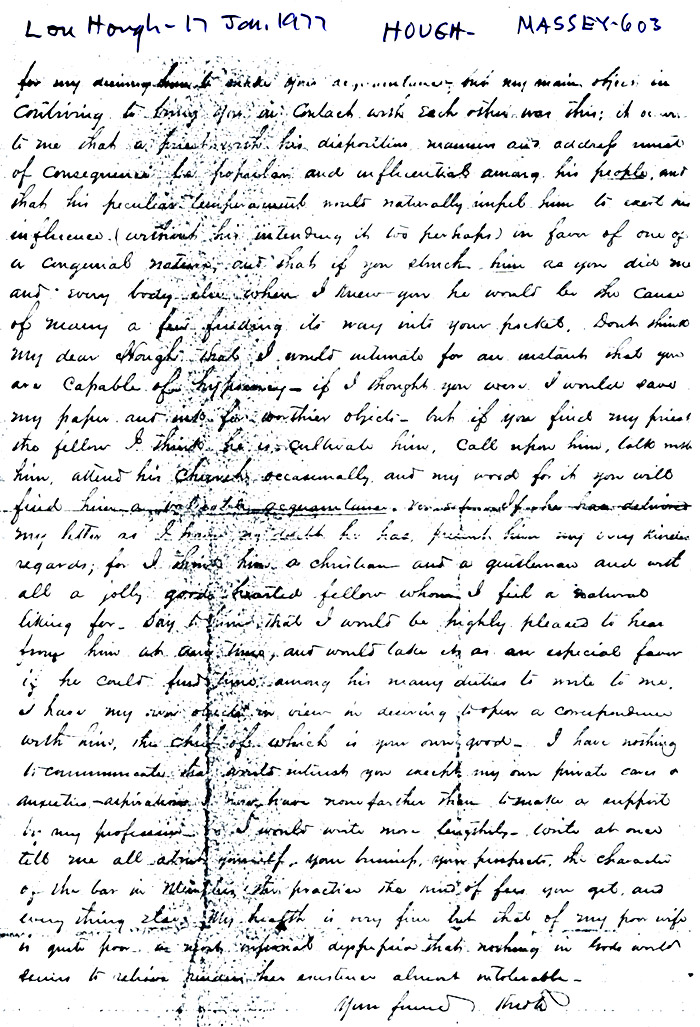 Lou Hough - 17 Jan. 1977 HOUGH - MASSEY - 603
for my desiring him to make your acquaintance, but my main object in
contriving to bring you in contact with each other was this; it occur
to me that a priest with his disposition manners and address must
of consequence be popular and influential among his people, and
that his peculiar temperament would naturally impel him to exert his
influence (without his intending it too perhaps) in favor of one of
a congenial nature, and that if you struck him as you did me
and every body else when I knew you he would be the cause
of many a fee finding its way into your pocket. Dont think
my dear Hough that I would intimate for an instant that you
are capable of hypocricy - if I thought you were I would save
my paper and ink for worthier objects - but if you find my priest
the fellow I think he is cultivate him, call upon him, talk with
him, attend his church occasionally, and my word for it you will
find him a valuable acquaintance. If he has delivered
my letter as I have no doubt he has, present him my very kindest
regards; for I think him a christian and a gentleman and with
all a jolly good hearted fellow whom I feel a natural
liking for - Say to him that I would be highly pleased to hear
from him at any time, and would take it as an especial favor
if he could find time among his many duties to write to me.
I have my own objects in view in desiring to open a correspondence
with him, the chief of which is your own good - I have nothing
to communicate that would interest you except my own private cares &
anxieties - aspirations I now have none farther than to make a support
by my profession - or I would write more lengthily - Write at once
tell me all about yourself, your business, your prospects, the character
of the bar in Memphis the practice the kind of fees you get, and
every thing else. My health is very fine but that of my poor wife
is quite poor - a most infernal dyspepsia that nothing in Gods world
seems to relieve renders her existence almost intolerable -
Your friend